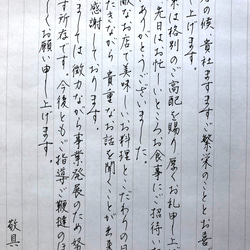 の候、貴社ますますご繁栄のこととお喜
上げます。
は格別のご高配を賜り厚くお礼申し
先日はお忙しいところお食事にご招待い
ありがとうございました
敵なお店で美味しいお料理とこだわりの日
だきながら、貴重なお話を聞くことが出来
感謝しております。
ましては微力ながら事業発展のため努
す所存です。今後ともご指導ご鞭撻の
しくお願い申し上げます。
敬具